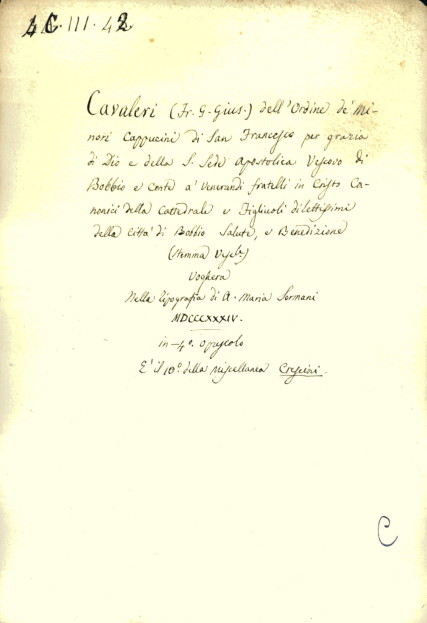 4C.III.42
Cavaleri (Fr. G. Gius.) dell'Ordine de' Mi-
nori Cappucini di San Francesco per grazia
di Dio e della S. Sede Apostolica Vescovo di
Bobbio e Conte a' Venerandi fratelli in Cristo Ca-
nonici della Cattedrale e Figliuoli dilettissimi
della Città di Bobbio Salute, e Benedizione
(Stemma Vesc.le)
Voghera
Nella tipografia di A. Maria Sormani
MDCCCXXXIV.
in-4.o opuscolo
E' il 10.o della miscellanea Crescini.
C